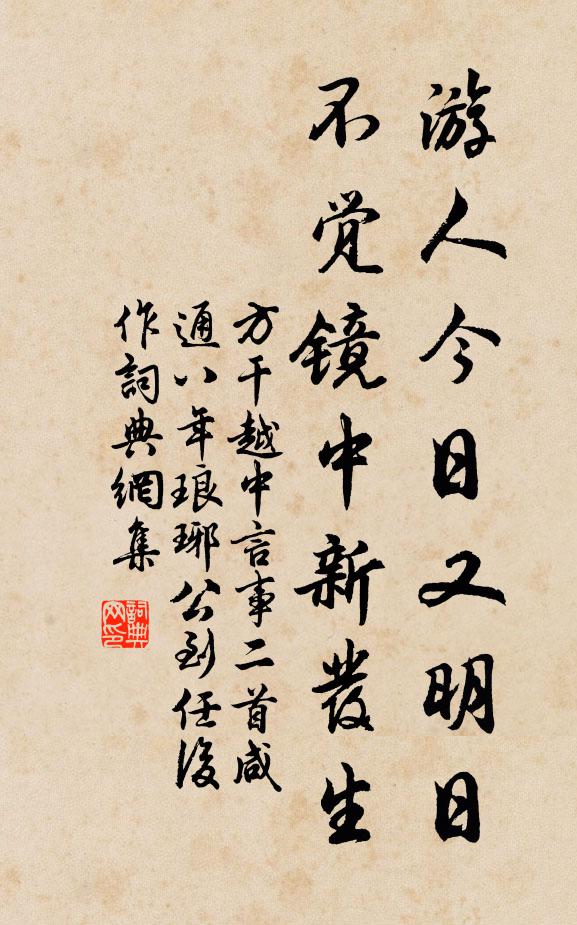 游人今日又明日
不觉镜中新發生
方干越中言事二首咸
通八年琅琊公到任後
作詞典網集
詞典
网印